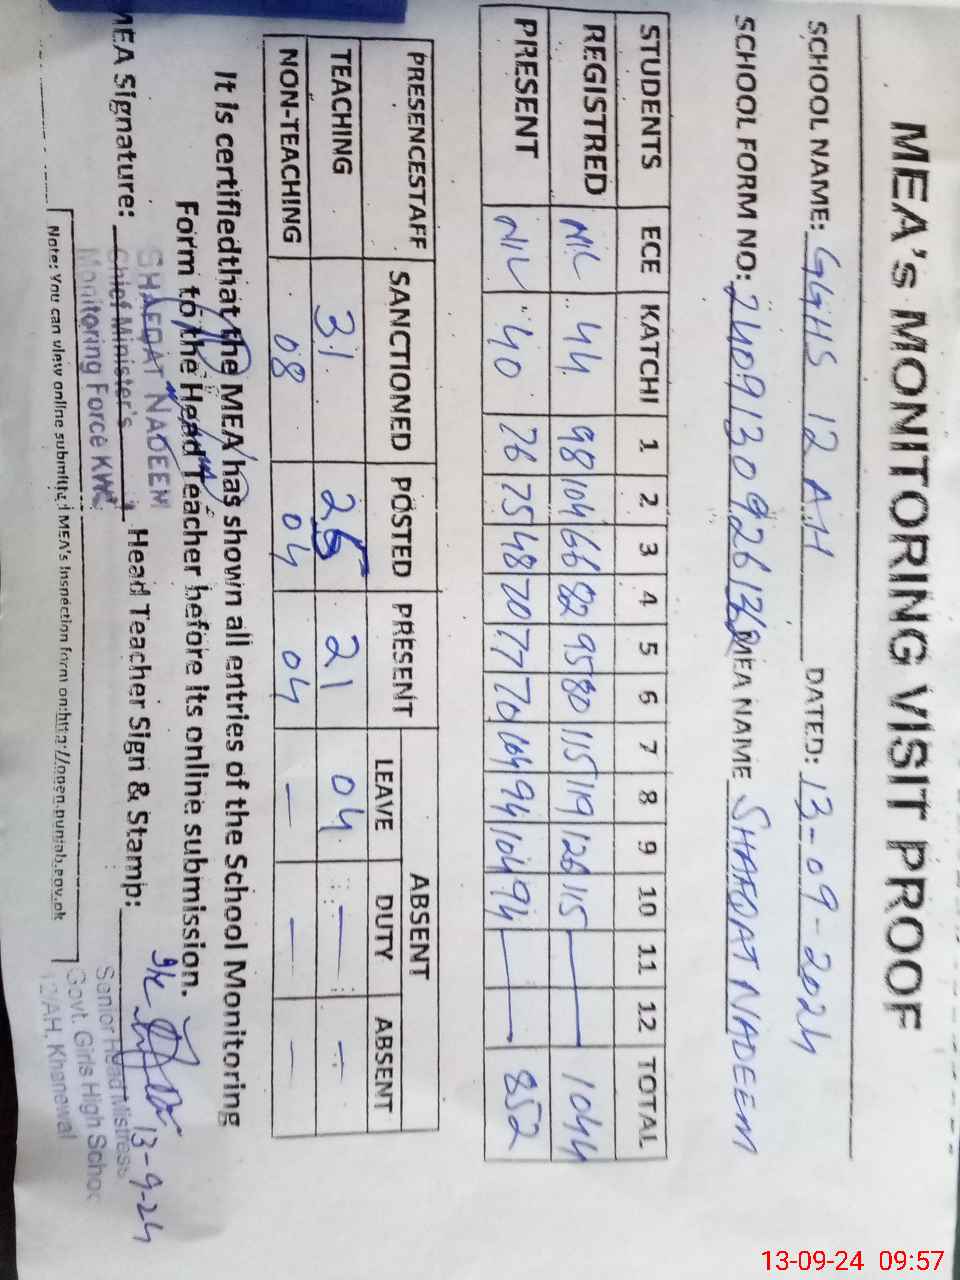 MEA's MONITORING VISIT PROOF
SCHOOL NAME: GGHS 12 AH DATED: 13-09-2024
SCHOOL FORM NO: MEA NAME SHAFQAT NADEEM
STUDENTS ECE KATCHI 1 2 3 4 5 6 7 8 9 10 11 12 TOTAL
REGISTRED NIL 44 98 104 66 82 95 80 115 119 126 115 — — 1044
PRESENT NIL 40 76 75 48 70 77 70 104 94 104 94 — — 852
PRESENCESTAFF SANCTIONED POSTED PRESENT ABSENT
LEAVE DUTY ABSENT
TEACHING 31 25 21 04 — —
NON-TEACHING 08 04 04 — — —
It is certifiedthat the MEA has shown all entries of the School Monitoring
Form to the Head Teacher before its online submission.
MEA Signature: Head Teacher Sign & Stamp:
SHAFQAT NADEEM
Chief Minister's
Monitoring Force KWL
13-9-24
Senior Head Mistress
Govt. Girls High School
12/AH, Khanewal
Note: You can view online submitted MEA's Inspection form on:http://open.punjab.gov.pk
13-09-24 09:57